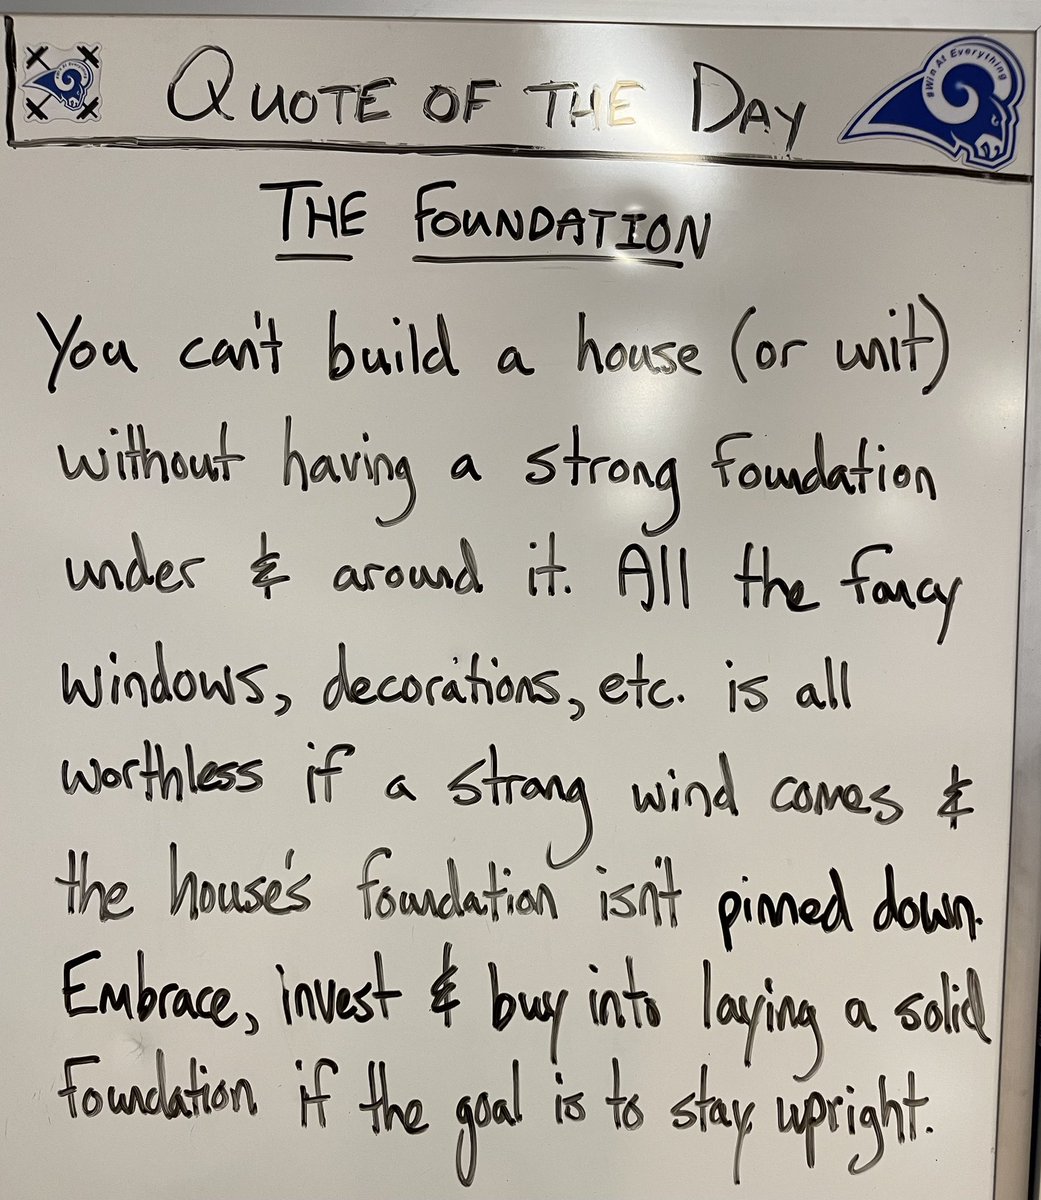 QUOTE OF THE DAY
#Win At Everything
THE FOUNDATION
You can't build a house (or unit)
without having a strong foundation
under & around it. All the fancy
windows, decorations, etc. is all
worthless if a strong wind comes &
the house's foundation isn't pinned down.
Embrace, invest & buy into laying a solid
foundation if the goal is to stay upright.